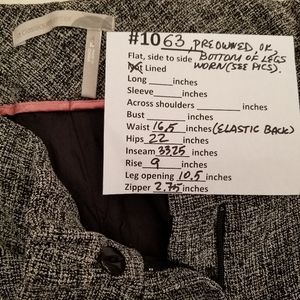 #1063, PREOWNED, OK,
Flat, side to side BOTTOM OF LEGS
Not Lined WORN (SEE PICS).
Long ____ inches
Sleeve ____ inches
Across shoulders ____ inches
Bust ____ inches
Waist 16,5 inches (ELASTIC BACK)
Hips 22 inches
Inseam 33.25 inches
Rise 9 inches
Leg opening 10,5 inches
Zipper 2.75 inches